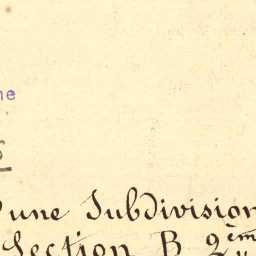 ne
s
une Subdivision
Section B 2ème